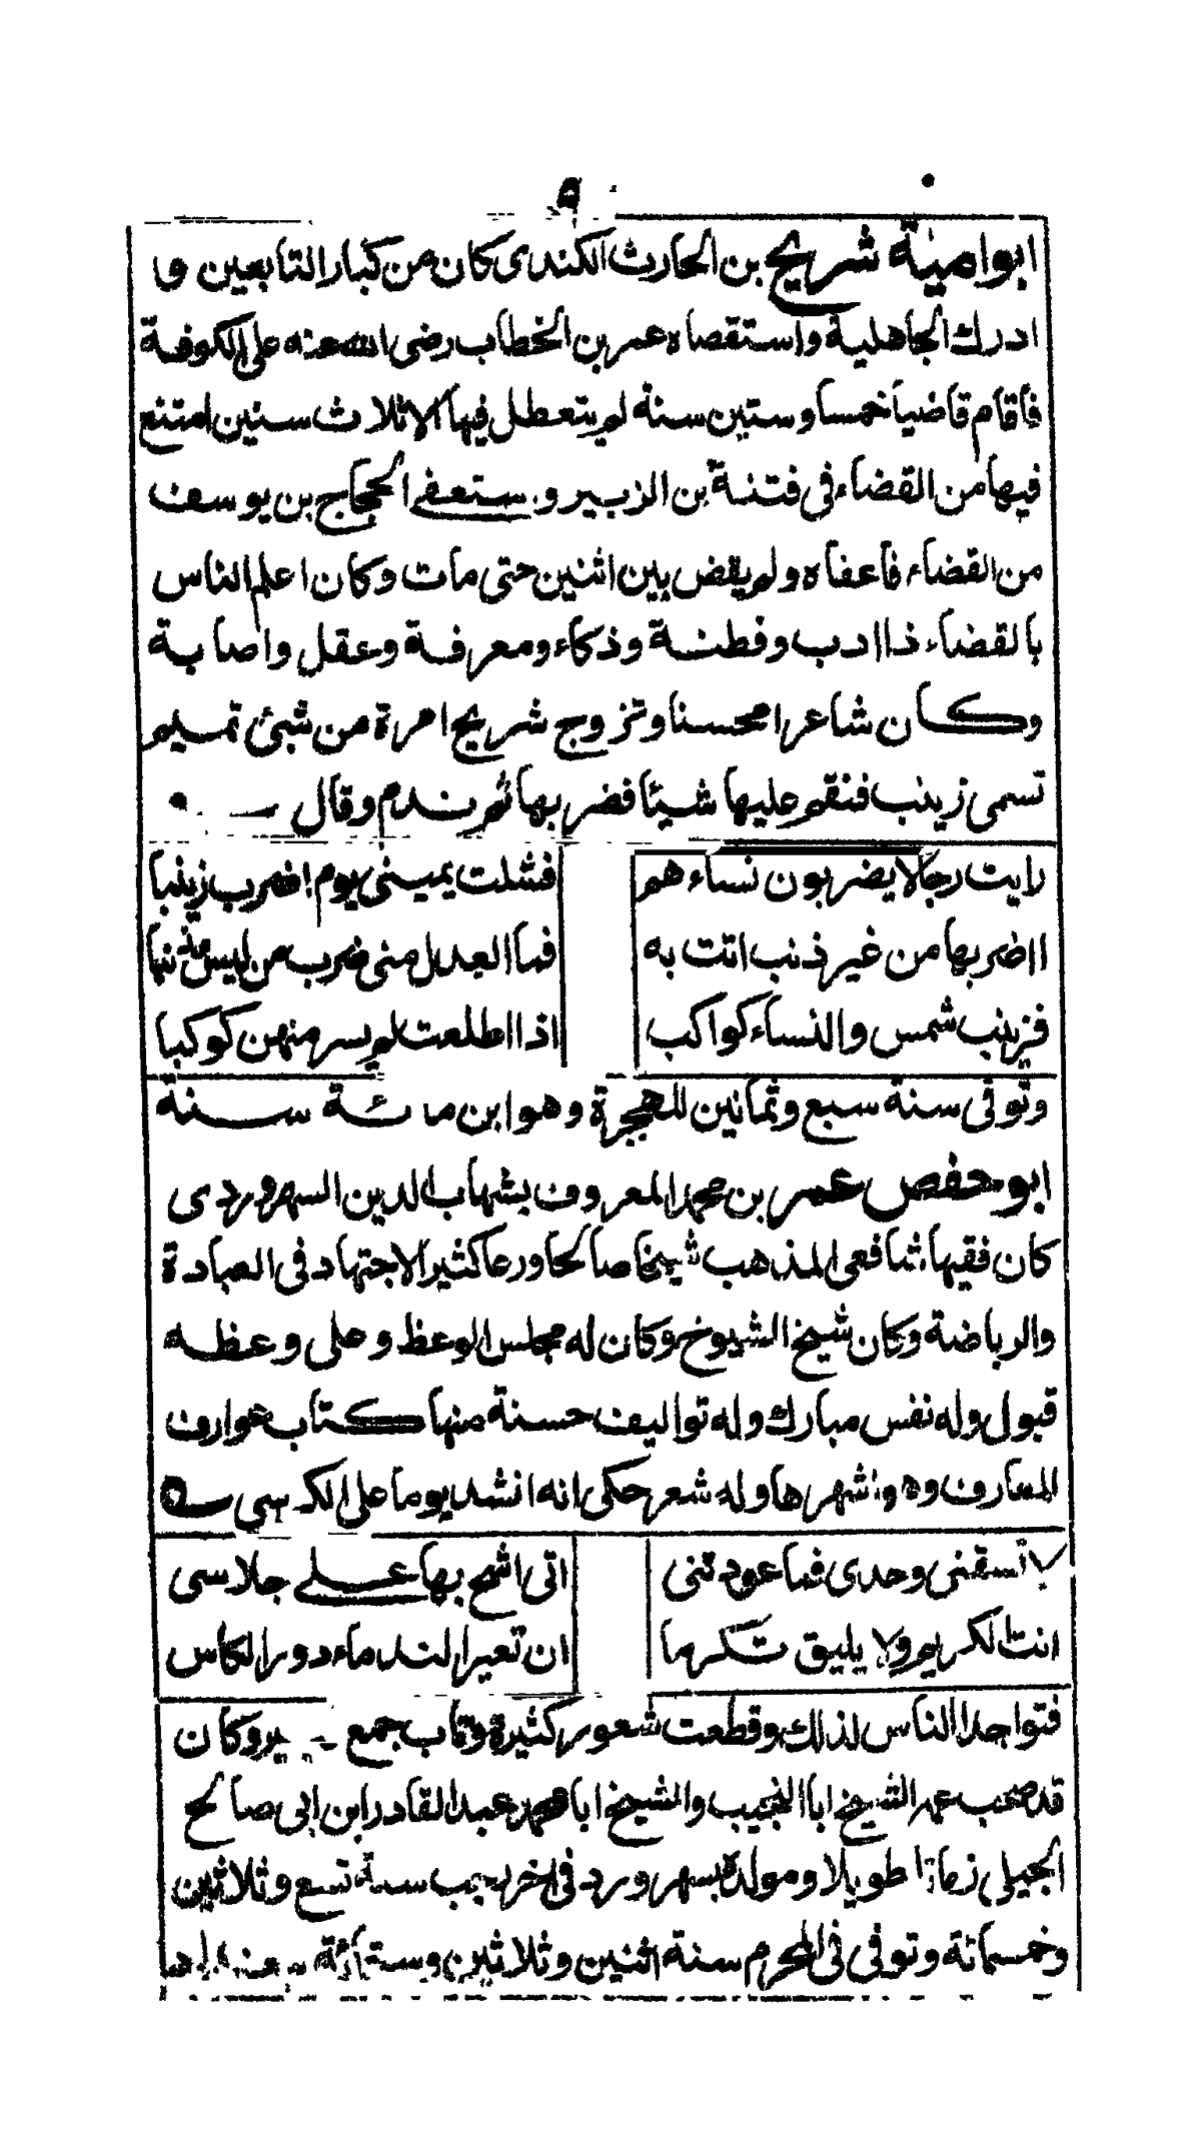 ابوامية شريح بن الحارث الكندى كان من كبار التابعين و
ادرك الجاهلية واستقضاه عمر بن الخطاب رضى الله عنه على الكوفة
فأقام قاضيا خمسا وستين سنة لم يتعطل فيها الا ثلاث سنين امتنع
فيها من القضاء فى فتنة بن الزبير و ستعفى الحجاج بن يوسف
من القضاء فاعفاه ولم يقض بين اثنين حتى مات وكان اعلم الناس
بالقضاء ذا ادب وفطنة وذكاء ومعرفة وعقل واصابة
وكان شاعرا محسنا وتزوج شريح امرة من تميم
تسمى زينب فنقم عليها شيئا فضربها ثم ندم وقال
رايت رجالا يضربون نساءهم فشلت يمينى يوم اضرب زينبا
ااضربها من غير ذنب اتت به فما العدل منى ضرب من ليس مذنبا
فزينب شمس والنساء كواكب اذا اطلعت لم يسر منهن كوكبا
وتوفى سنة سبع وثمانين للهجرة وهو ابن مائة سنة
ابو حفص عمر بن محمد المعروف بشهاب الدين السهروردى
كان فقيها شافعى المذهب شيخا صالحا ورعا كثير الاجتهاد فى العبادة
والرياضة وكان شيخ الشيوخ وكان له مجلس الوعظ وعلى وعظه
قبول وله نفس مبارك وله تواليف حسنة منها كتاب عوارف
المعارف وهو اشهرها وله شعر حكى انه انشد يوما على الكرسى
لا تسقنى وحدى فما عودتنى انى اشح بها على جلاسى
انت الكريم ولا يليق تكرما ان تعير الندماء دور الكاس
فتواجد الناس لذلك وقطعت شعور كثيرة وتاب جمع وكان
قد صحب عمه الشيخ ابا النجيب والشيخ ابا محمد عبد القادر ابن ابى صالح
الجيلى زمانا طويلا ومولده بسهرورد فى اخر رجب سنة تسع وثلاثين
وخمسمائة وتوفى فى المحرم سنة اثنين وثلاثين وستمائة